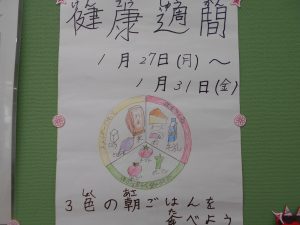 健康週間
1月27日(月)~
1月31日(金)
3色の朝ごはんを
食べよう